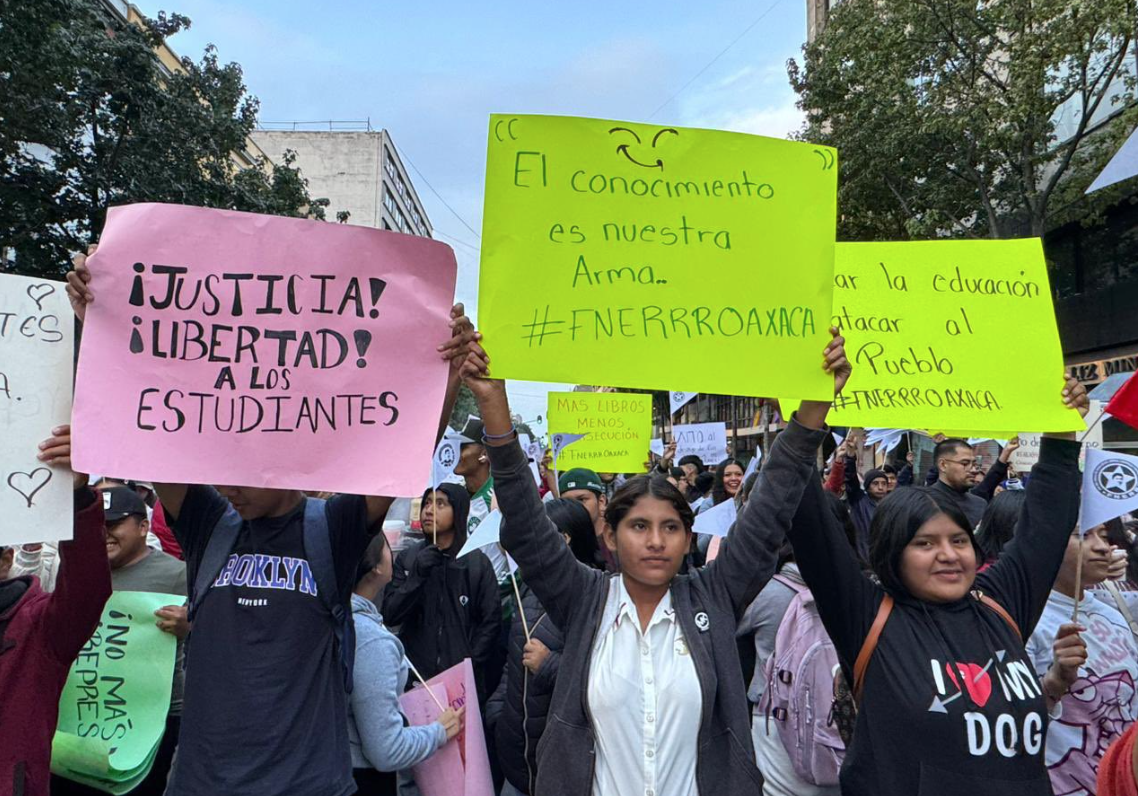 ¡JUSTICIA!
¡LIBERTAD!
A LOS
ESTUDIANTES
"El conocimiento
es nuestra
Arma...
#FNERRROAXACA"
ar la educación
atacar al
Pueblo
#FNERRROAXACA.
MAS LIBROS
MENOS
SECUCIÓN
#FnerrrOaxaca
ALTO al
¡NO MÁS
REPRES
BROOKLYN
NEW YORK
I MY
DOG